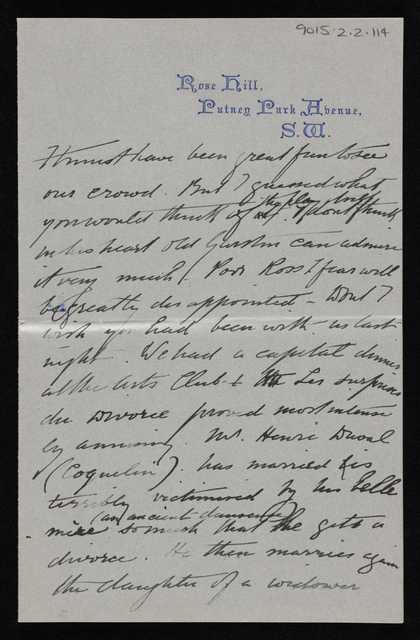 9015/2/2/114
Rose Hill,
Putney Park Avenue,
S.W.
It must have been great fun to see
our crowd. But I guessed what
you would think of the play. I dont think
in his heart old can admire
it very much. Poor Ross I fear will
be greatly disappointed - Dont I
wish you had been with us last
night. We had a capital dinner
at the Arts Club & Les Surprises
du Divorce proved most intense
ly amusing. Mr. Henri Duval
(Coquelin) has married & is
terribly victimised by his belle
mère (an ancient danseuse) so much that he gets a
divorce. He then marries again
the daughter of a widower